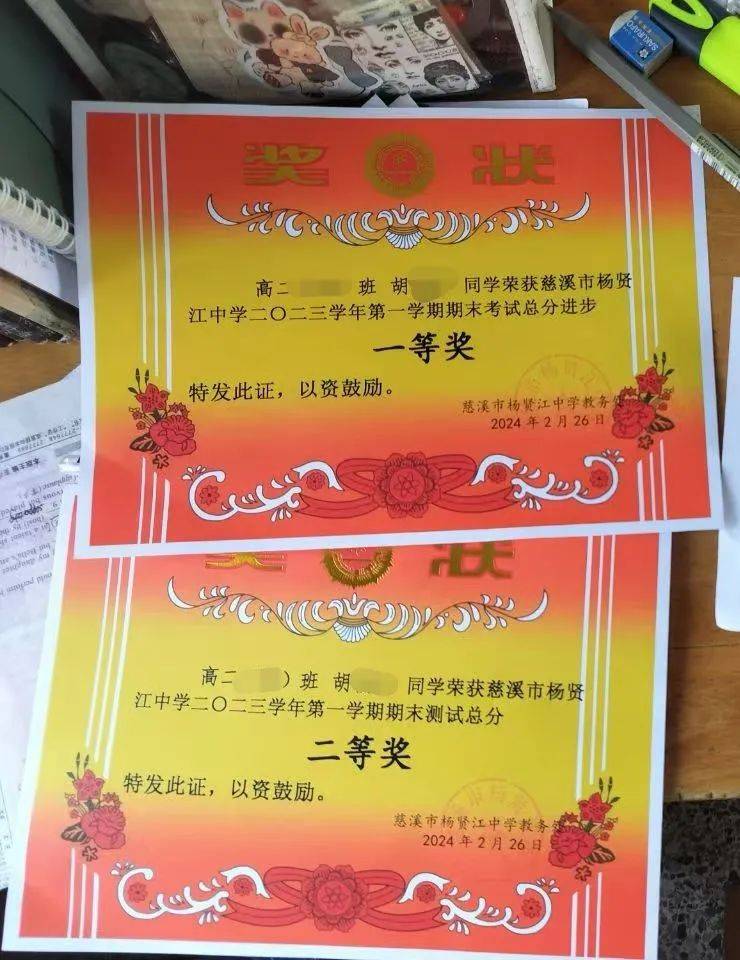 SAKURAPO
奖 状
高二 班 胡 同学荣获慈溪市杨贤
江中学二〇二三学年第一学期期末考试总分进步
一等奖
特发此证，以资鼓励。
慈溪市杨贤江中学教务处
2024年2月26日
奖 状
高二 ）班 胡 同学荣获慈溪市杨贤
江中学二〇二三学年第一学期期末测试总分
二等奖
特发此证，以资鼓励。
慈溪市杨贤江中学教务处
2024年2月26日